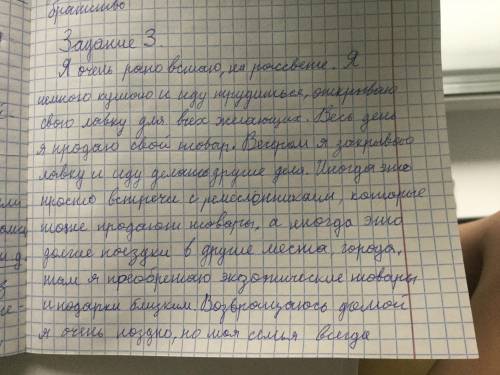 братство
Задание 3.
Я очень рано встаю, на рассвете. Я
немного кушаю и иду трудиться, открываю
свою лавку для всех желающих. Весь день
я продаю свой товар. Вечером я закрываю
лавку и иду делать другие дела. Иногда это
просто встречи с ремеслонниками, которые
тоже продают товары, а иногда это
долгие поездки в другие места, города,
там я преобретаю экзотические товары
и подарки близким. Возвращаюсь домой
я очень поздно, но моя семья всегда